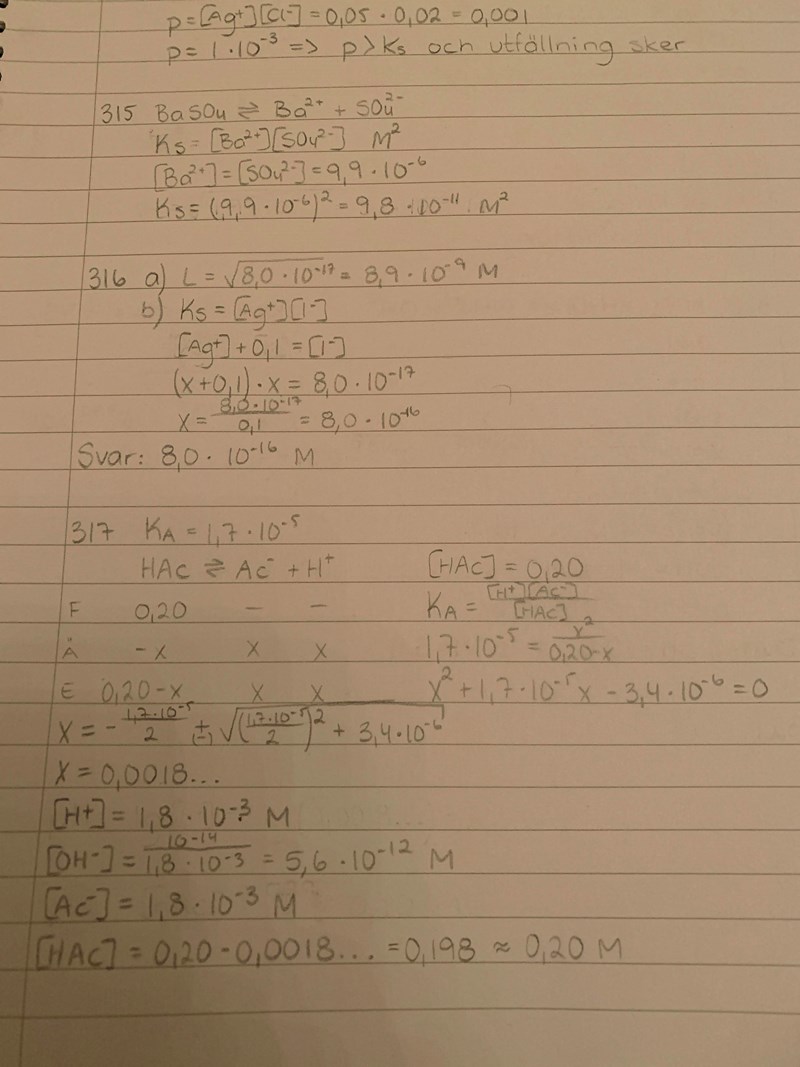 p = [Ag⁺][Cl⁻] = 0,05 · 0,02 = 0,001
p = 1 · 10⁻³ => p > Ks och utfällning sker
315 BaSO₄ ⇌ Ba²⁺ + SO₄²⁻
Ks = [Ba²⁺][SO₄²⁻] M²
[Ba²⁺] = [SO₄²⁻] = 9,9 · 10⁻⁶
Ks = (9,9 · 10⁻⁶)² = 9,8 · 10⁻¹¹ M²
316 a) L = √(8,0 · 10⁻¹⁷) = 8,9 · 10⁻⁹ M
b) Ks = [Ag⁺][I⁻]
[Ag⁺] + 0,1 = [I⁻]
(x + 0,1) · x = 8,0 · 10⁻¹⁷
x = 8,0 · 10⁻¹⁷ / 0,1 = 8,0 · 10⁻¹⁶
Svar: 8,0 · 10⁻¹⁶ M
317 KA = 1,7 · 10⁻⁵
HAc ⇌ Ac⁻ + H⁺ [HAc] = 0,20
F 0,20 – – KA = [H⁺][Ac⁻] / [HAc]
Ä -x x x 1,7 · 10⁻⁵ = x² / 0,20-x
E 0,20-x x x x² + 1,7 · 10⁻⁵x - 3,4 · 10⁻⁶ = 0
x = - 1,7 · 10⁻⁵ / 2 (±) √((1,7 · 10⁻⁵ / 2)² + 3,4 · 10⁻⁶)
x = 0,0018...
[H⁺] = 1,8 · 10⁻³ M
[OH⁻] = 10⁻¹⁴ / 1,8 · 10⁻³ = 5,6 · 10⁻¹² M
[Ac⁻] = 1,8 · 10⁻³ M
[HAc] = 0,20 - 0,0018... = 0,198 ≈ 0,20 M